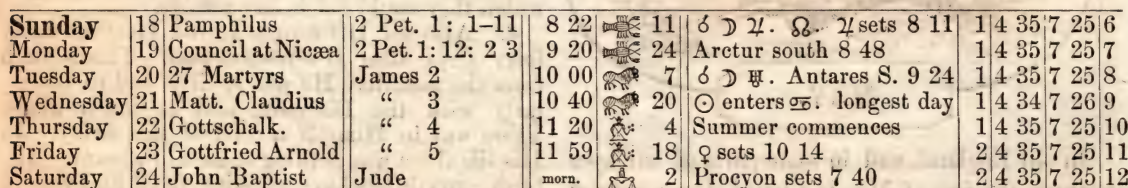 Sunday 18 Pamphilus 2 Pet. 1: 1–11 8 22 11 ☌ ☽ ♃. ☊. ♃ sets 8 11 1 4 35 7 25 6
Monday 19 Council at Nicæa 2 Pet. 1: 12: 2 3 9 20 24 Arctur south 8 48 1 4 35 7 25 7
Tuesday 20 27 Martyrs James 2 10 00 7 ☌ ☽ ♅. Antares S. 9 24 1 4 35 7 25 8
Wednesday 21 Matt. Claudius “ 3 10 40 20 ☉ enters ♋. longest day 1 4 34 7 26 9
Thursday 22 Gottschalk. “ 4 11 20 4 Summer commences 1 4 35 7 25 10
Friday 23 Gottfried Arnold “ 5 11 59 18 ♀ sets 10 14 2 4 35 7 25 11
Saturday 24 John Baptist Jude morn. 2 Procyon sets 7 40 2 4 35 7 25 12